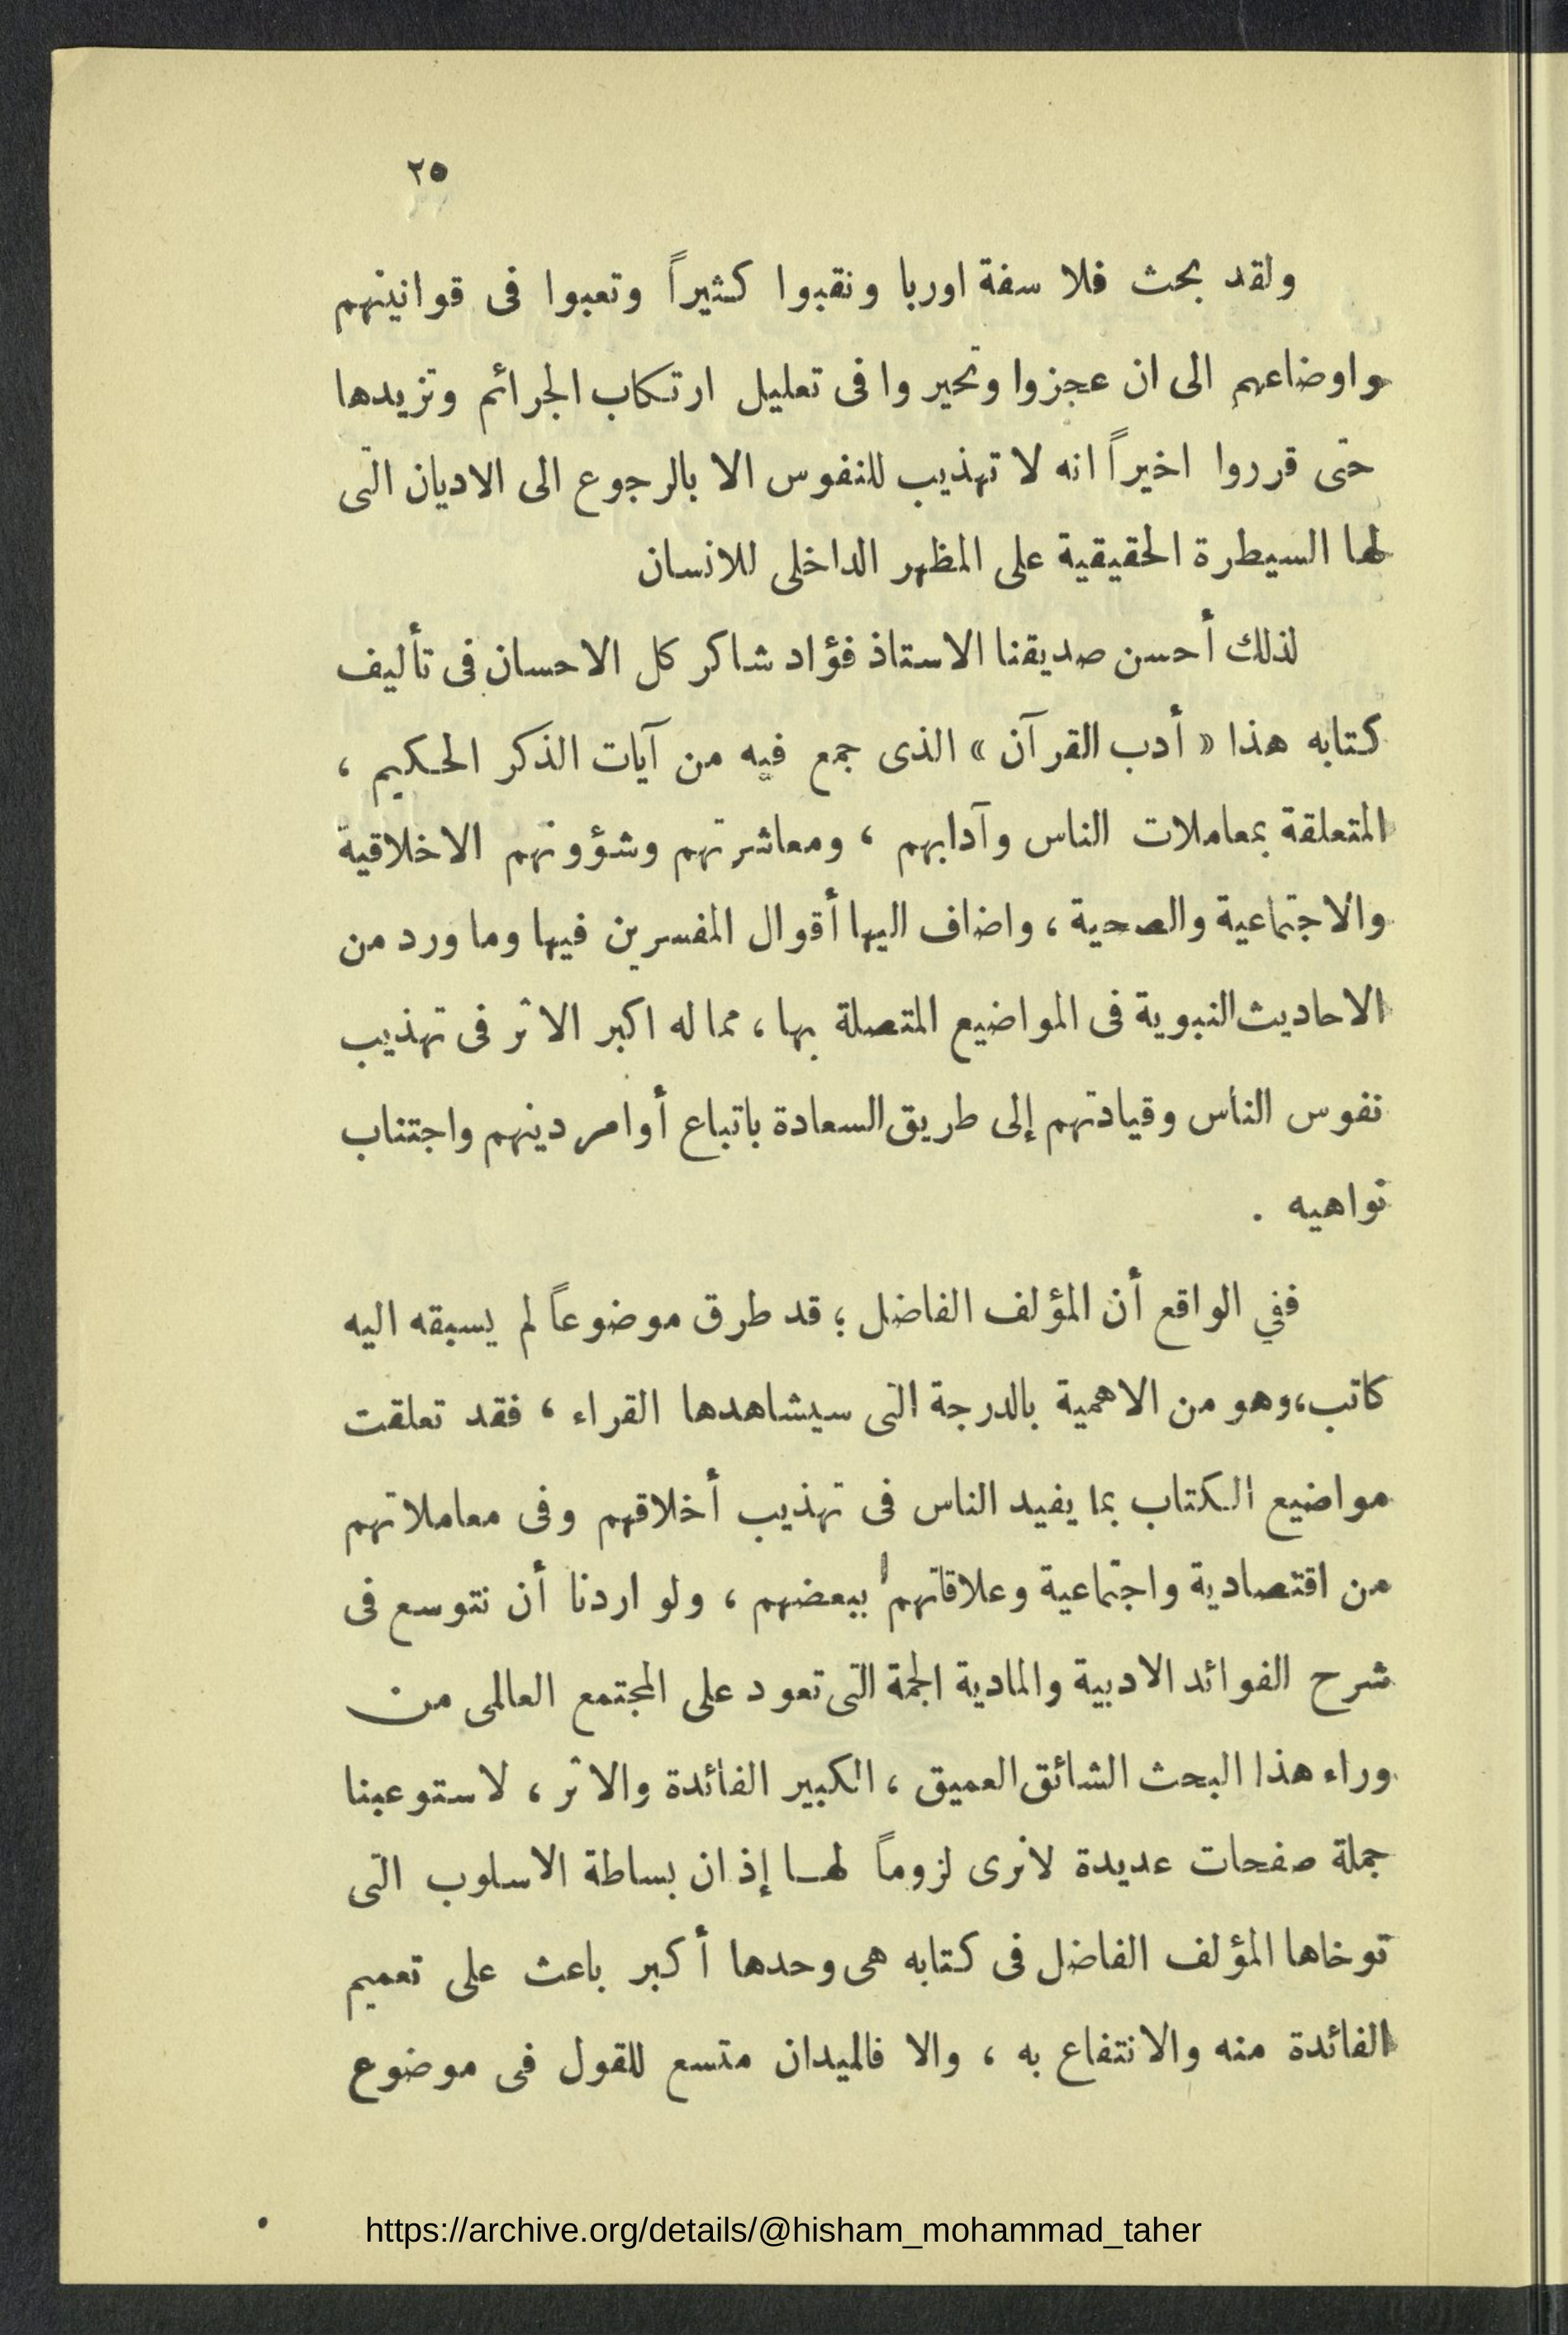 ٢٥
ولقد بحث فلاسفة اوربا ونقبوا كثيراً وتعبوا فى قوانينهم
واوضاعهم الى ان عجزوا وتحيروا فى تعليل ارتكاب الجرائم وتزيدها
حتى قرروا اخيراً انه لا تهذيب للنفوس الا بالرجوع الى الاديان التى
لها السيطرة الحقيقية على المظهر الداخلى للانسان
لذلك أحسن صديقنا الاستاذ فؤاد شاكر كل الاحسان فى تأليف
كتابه هذا « أدب القرآن » الذى جمع فيه من آيات الذكر الحكيم ،
المتعلقة بمعاملات الناس وآدابهم ، ومعاشرتهم وشؤونهم الاخلاقية
والاجتماعية والصحية ، واضاف اليها أقوال المفسرين فيها وما ورد من
الاحاديث النبوية فى المواضيع المتصلة بها ، مما له اكبر الاثر فى تهذيب
نفوس الناس وقيادتهم إلى طريق السعادة باتباع أوامر دينهم واجتناب
نواهيه .
ففي الواقع أن المؤلف الفاضل ؛ قد طرق موضوعاً لم يسبقه اليه
كاتب، وهو من الاهمية بالدرجة التى سيشاهدها القراء ، فقد تعلقت
مواضيع الكتاب بما يفيد الناس فى تهذيب أخلاقهم وفى معاملاتهم
من اقتصادية واجتماعية وعلاقاتهم ببعضهم ، ولو اردنا أن نتوسع فى
شرح الفوائد الادبية والمادية الجمة التى تعود على المجتمع العالمى من
وراء هذا البحث الشائق العميق ، الكبير الفائدة والاثر ، لاستوعبنا
جملة صفحات عديدة لانرى لزوماً لهـا إذ ان بساطة الاسلوب التى
توخاها المؤلف الفاضل فى كتابه هى وحدها أكبر باعث على تعميم
الفائدة منه والانتفاع به ، والا فالميدان متسع للقول فى موضوع
https://archive.org/details/@hisham_mohammad_taher